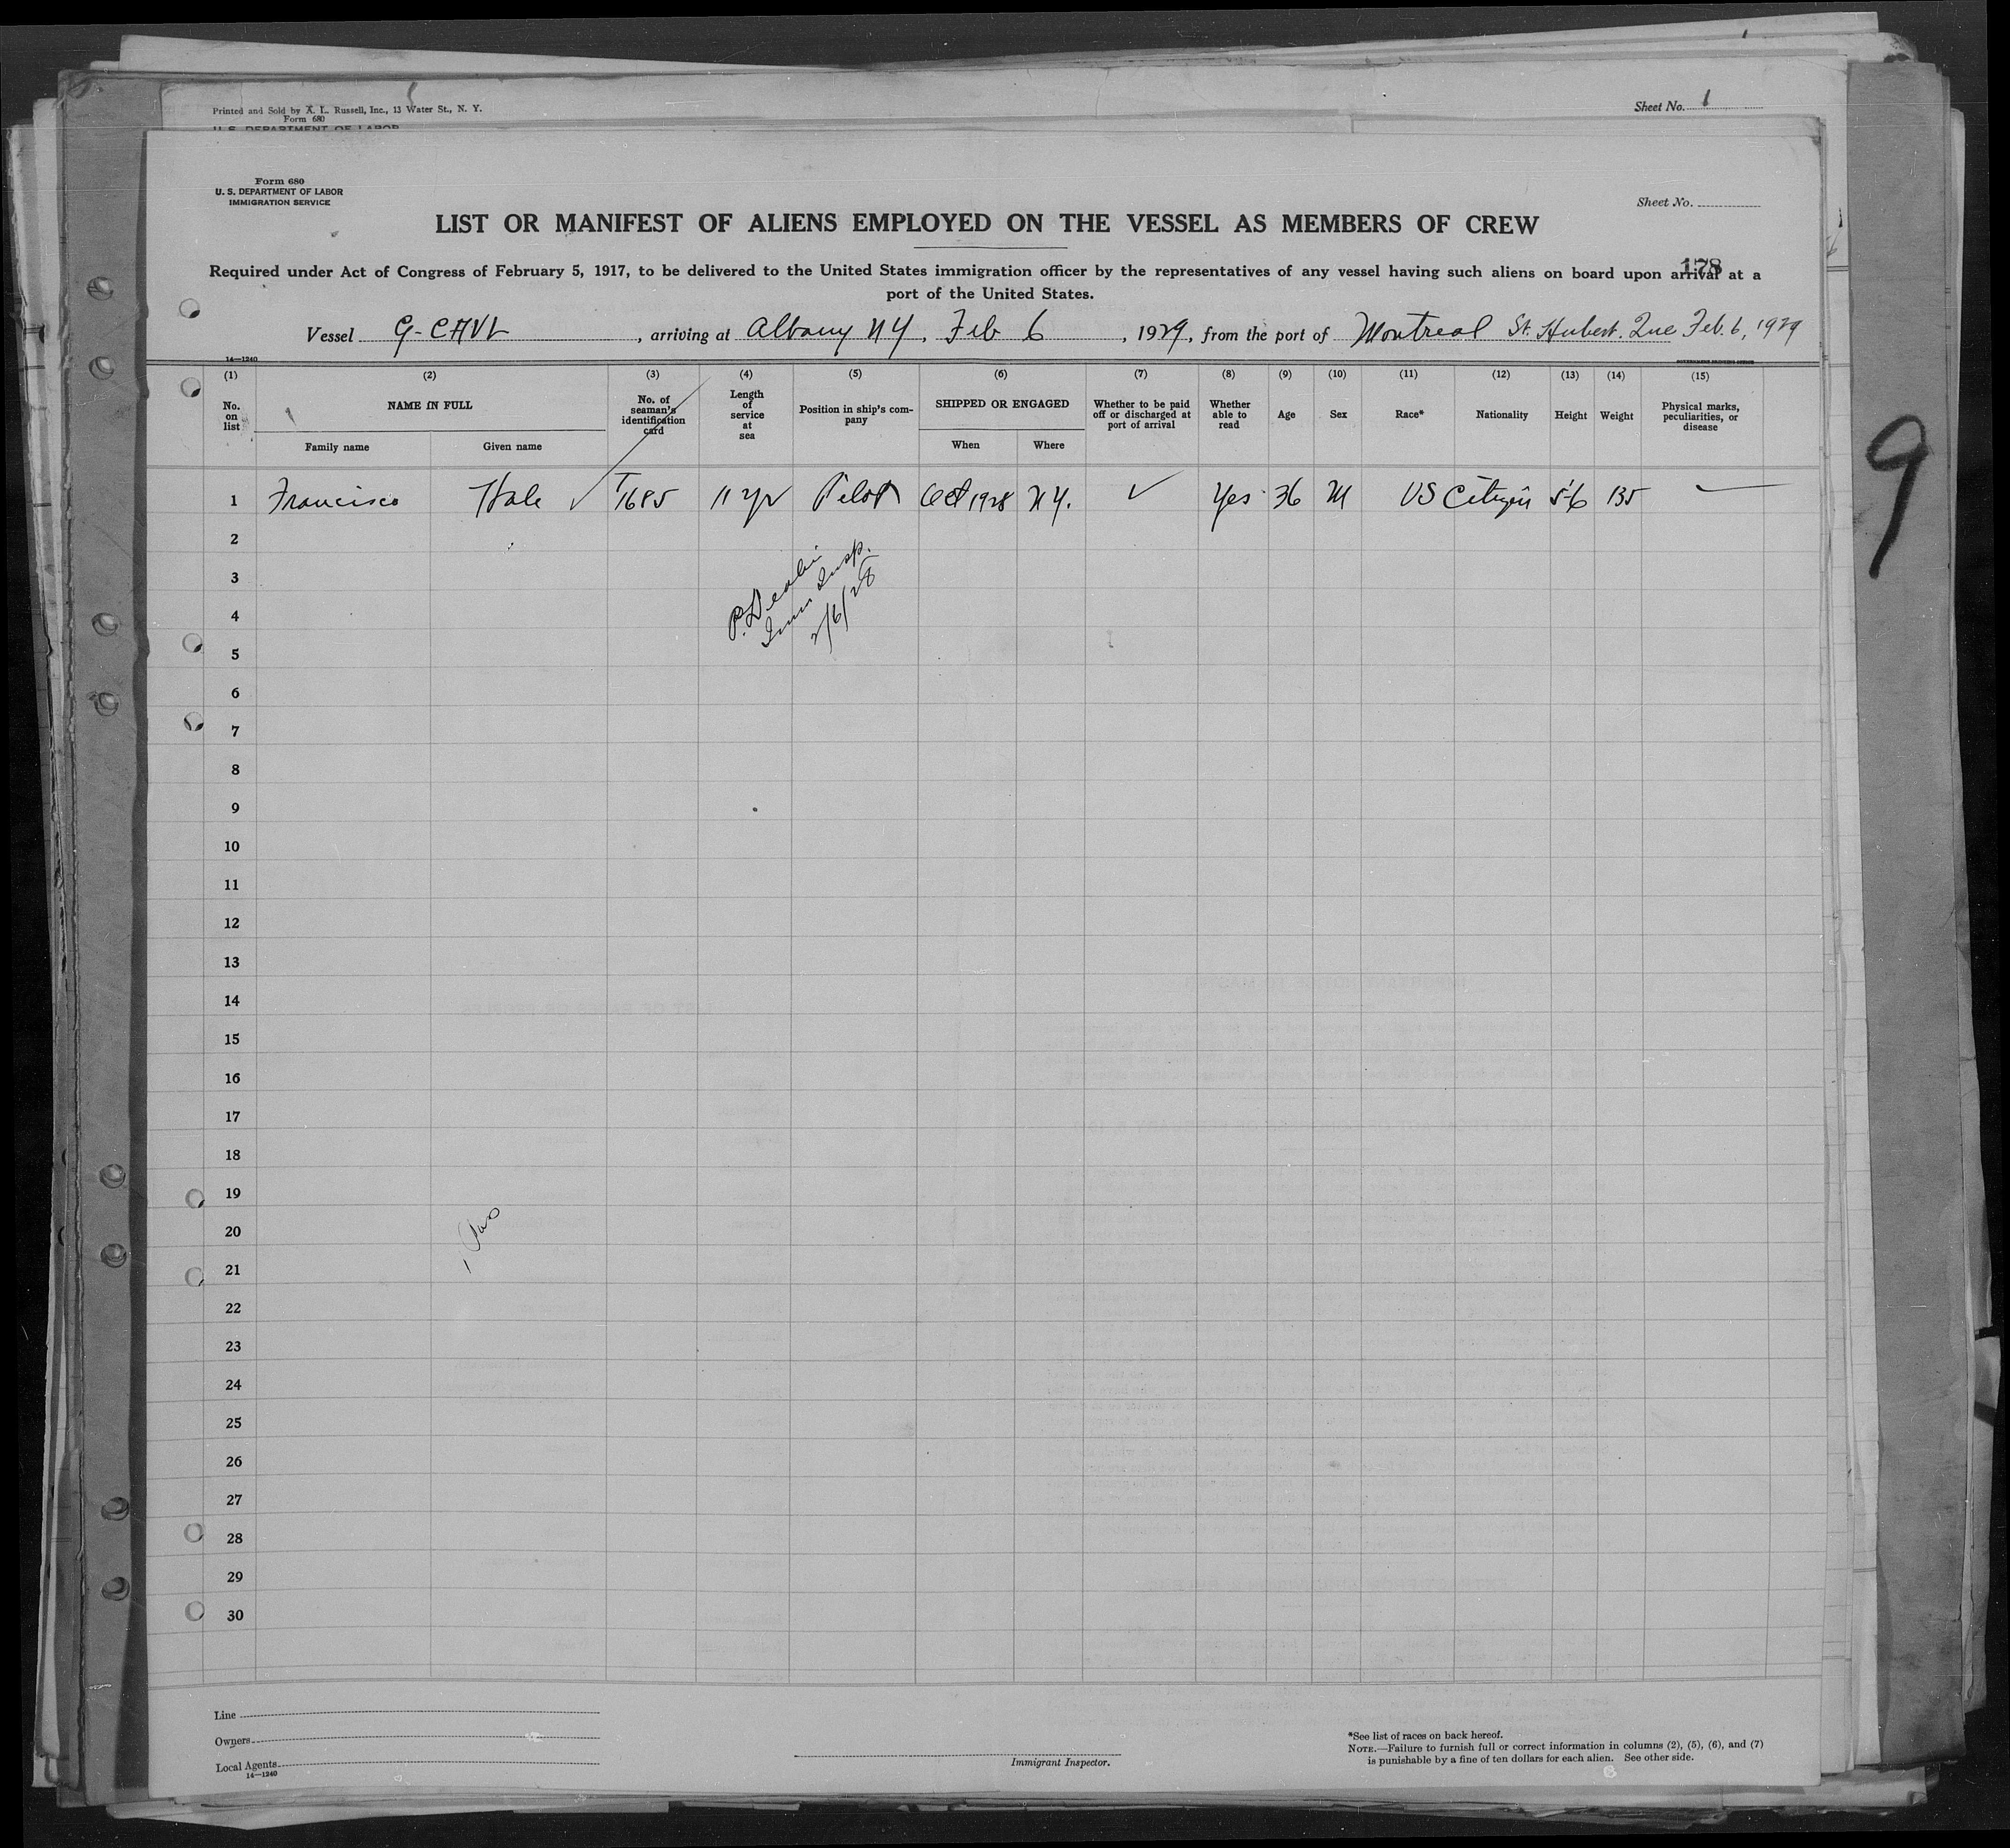 Printed and Sold by A. L. Russell, Inc., 13 Water St., N. Y.
Form 680
U. S. DEPARTMENT OF LABOR
Sheet No. 1
Form 680
U. S. DEPARTMENT OF LABOR
IMMIGRATION SERVICE
Sheet No.
LIST OR MANIFEST OF ALIENS EMPLOYED ON THE VESSEL AS MEMBERS OF CREW
178
Required under Act of Congress of February 5, 1917, to be delivered to the United States immigration officer by the representatives of any vessel having such aliens on board upon arrival at a
port of the United States.
Vessel G-CAVL, arriving at Albany NY, Feb 6, 1929, from the port of Montreal St. Hubert. Que Feb. 6, 1929
14—1240
GOVERNMENT PRINTING OFFICE
(1) (2) (3) (4) (5) (6) (7) (8) (9) (10) (11) (12) (13) (14) (15)
No. on list
NAME IN FULL
Family name
Given name
No. of seaman's identification card
Length of service at sea
Position in ship's company
SHIPPED OR ENGAGED
When
Where
Whether to be paid off or discharged at port of arrival
Whether able to read
Age
Sex
Race*
Nationality
Height
Weight
Physical marks, peculiarities, or disease
1 Francisco Hale ✓ T1685 11 yr Pilot Oct 1928 NY. ✓ Yes 36 M US Citizen 5'6 135 —
2
3
4
Imm Insp.
2/6/28
5
6
7
8
9
10
11
12
13
14
15
16
17
18
19
20
21
22
23
24
25
26
27
28
29
30
9
Line
Owners
Local Agents
14—1240
Immigrant Inspector.
*See list of races on back hereof.
NOTE.—Failure to furnish full or correct information in columns (2), (5), (6), and (7)
is punishable by a fine of ten dollars for each alien. See other side.